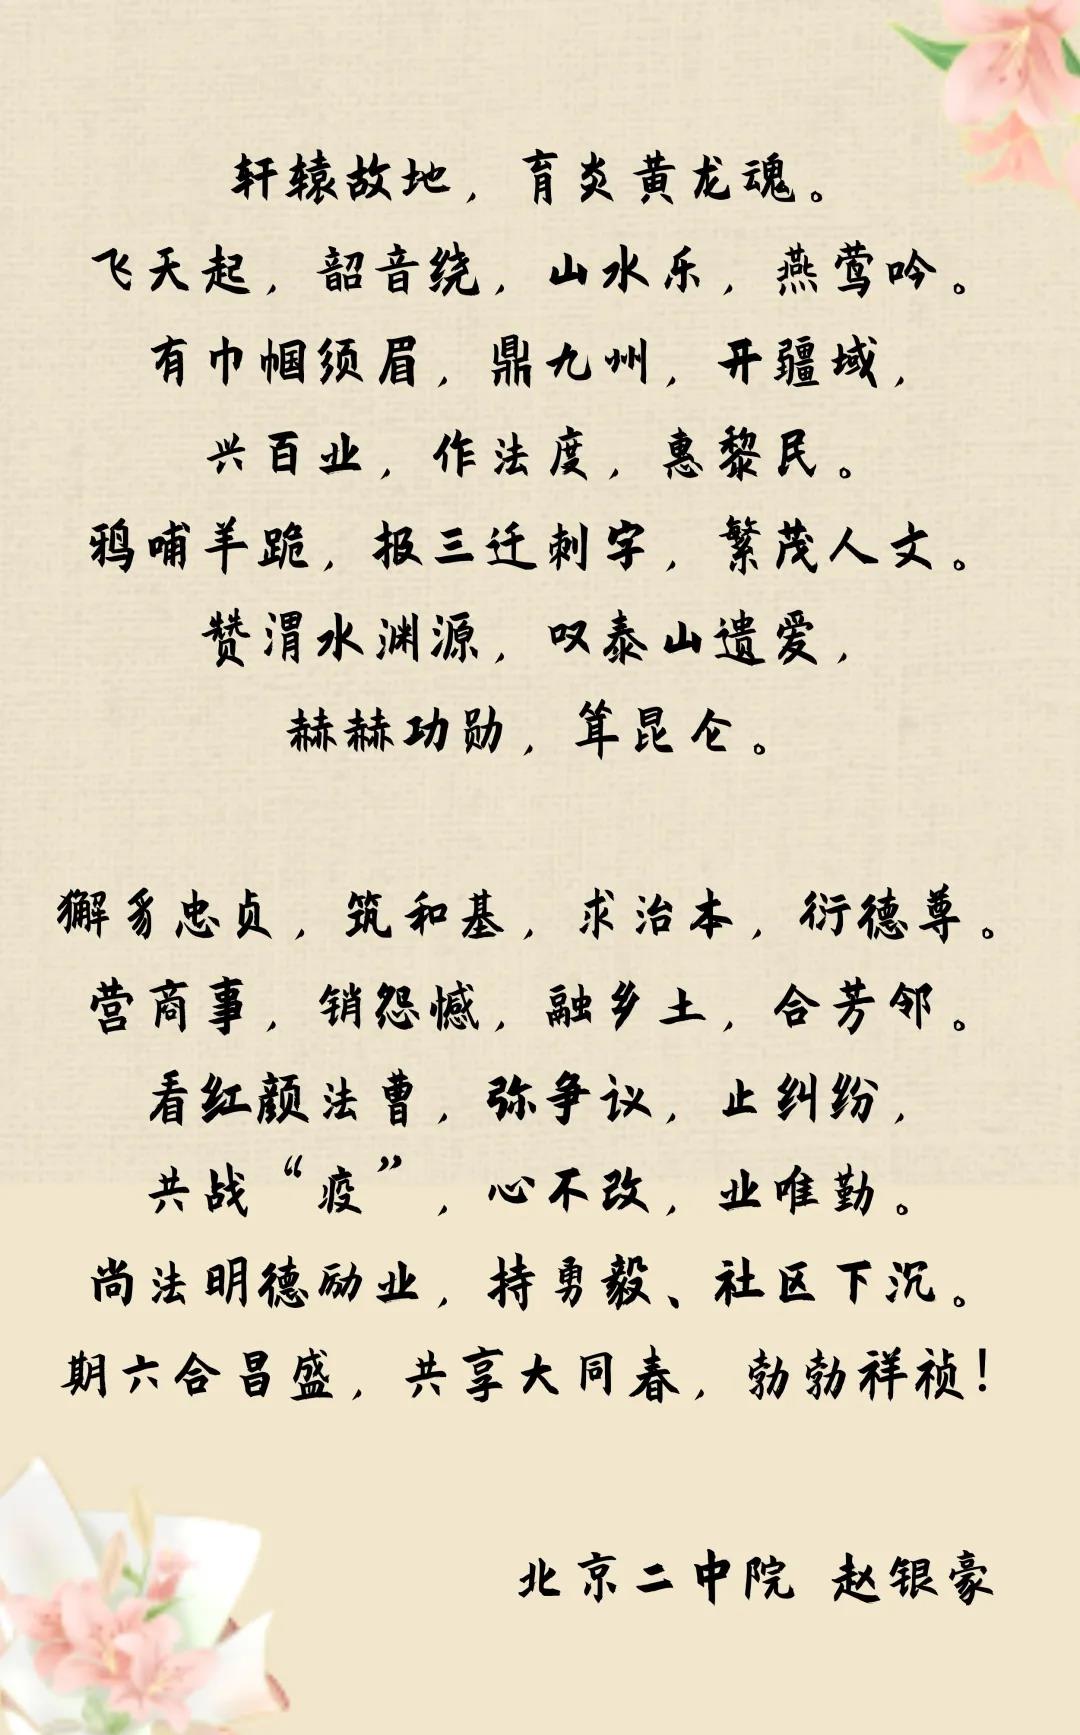 轩辕故地，育炎黄龙魂。
飞天起，韶音绕，山水乐，燕莺吟。
有巾帼须眉，鼎九州，开疆域，
兴百业，作法度，惠黎民。
鸦哺羊跪，报三迁刺字，繁茂人文。
赞渭水渊源，叹泰山遗爱，
赫赫功勋，耸昆仑。
獬豸忠贞，筑和基，求治本，衍德尊。
营商事，销怨憾，融乡土，合芳邻。
看红颜法曹，弥争议，止纠纷，
共战“疫”，心不改，业唯勤。
尚法明德励业，持勇毅、社区下沉。
期六合昌盛，共享大同春，勃勃祥祯！
北京二中院 赵银豪